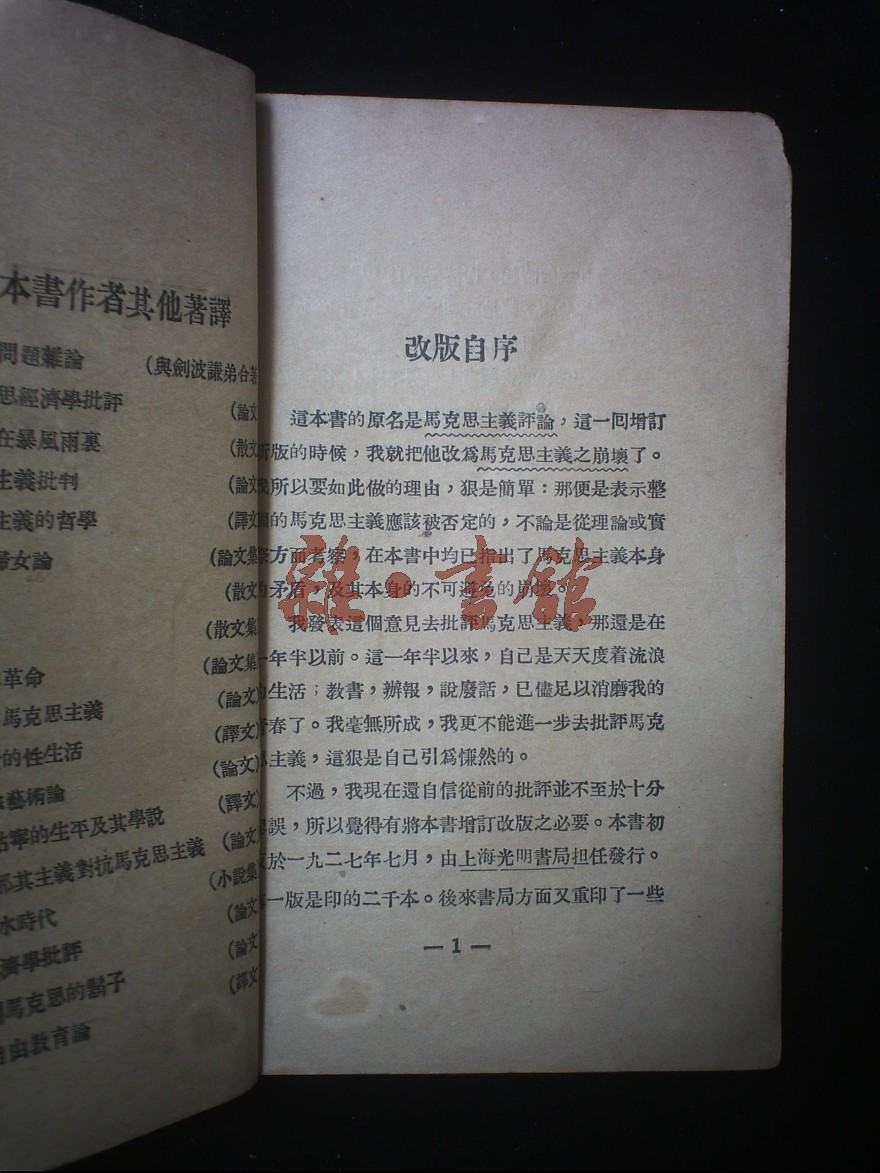 本書作者其他著譯
問題雜論 (與劍波謙弟合著
思經濟學批評 (論文
在暴風雨裏 (散文
主義批判 (論文
主義的哲學 (譯文
婦女論 (論文集
(散文
(散文集
革命 (論文集
馬克思主義 (論文
的性生活 (譯文
藝術論 (論文
寧的生平及其學說 (譯文
其主義對抗馬克思主義 (論文
水時代 (小說集
濟學批評 (論文
馬克思的鬍子 (論文
自由教育論 (譯文
改版自序
這本書的原名是馬克思主義評論,這一回增訂
版的時候,我就把他改爲馬克思主義之崩壞了。
所以要如此做的理由,狠是簡單:那便是表示整
的馬克思主義應該被否定的,不論是從理論或實
方面考察,在本書中均已指出了馬克思主義本身
矛盾,及其本身的不可避免的崩壞。
我發表這個意見去批評馬克思主義,那還是在
一年半以前。這一年半以來,自己是天天度着流浪
的生活;教書,辦報,說廢話,已儘足以消磨我的
青春了。我毫無所成,我更不能進一步去批評馬克
思主義,這狠是自己引爲慊然的。
不過,我現在還自信從前的批評並不至於十分
誤,所以覺得有將本書增訂改版之必要。本書初
於一九二七年七月,由上海光明書局担任發行。
一版是印的二千本。後來書局方面又重印了一些
— 1 —
雜·書館